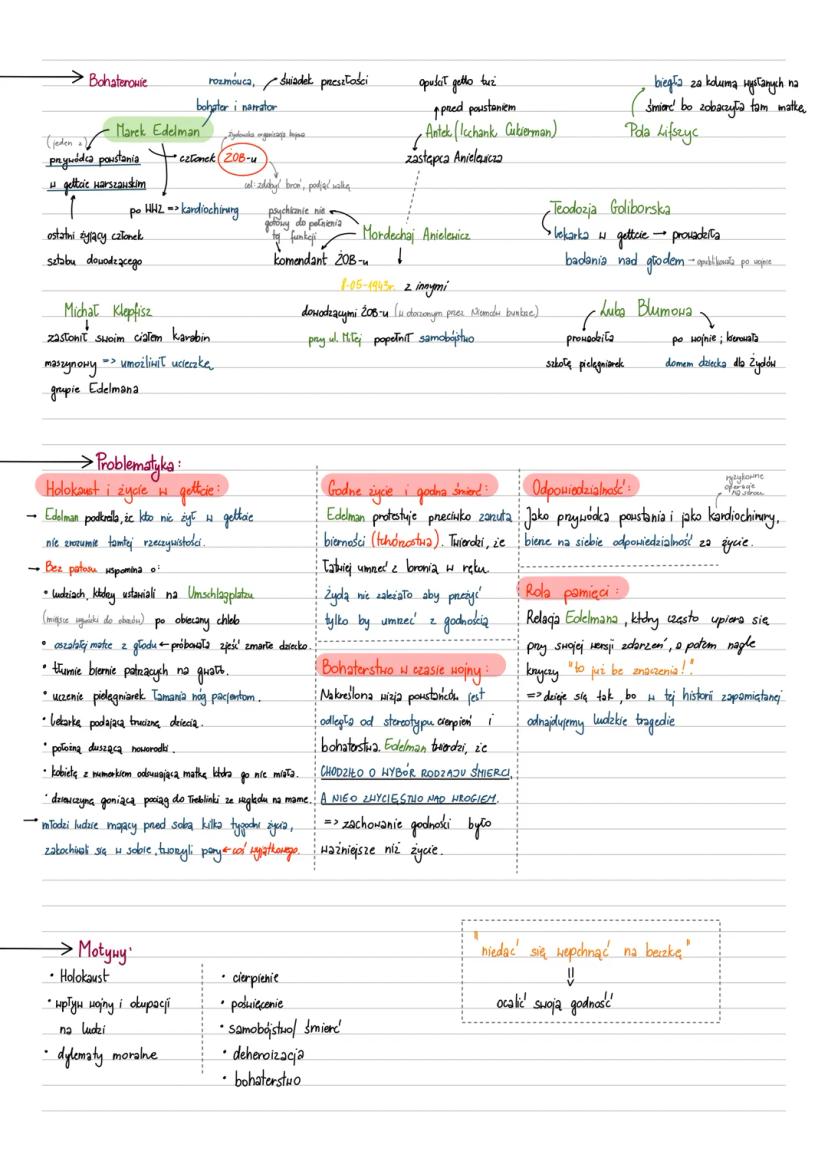 Bohaterowie
rozmówca, świadek przeszłości
bohater i narrator
Marek Edelman
(jeden z)
przywódca powstania
w getcie warszawskim
ostatni żyjący członek
sztabu dowodzącego
członek ŻOB-u
Żydowska organizacja bojowa
cel: zdobyć broń, podjąć walkę
po WWZ => kardiochirurg
opuścił getto tuż
przed powstaniem
Antek (Icchank Cukierman)
zastępca Anielewicza
biegła za kolumą wysłanych na
śmierć bo zobaczyła tam matkę
Pola Lifszyc
psychicznie nie
gotowy do pełnienia
tej funkcji
Mordechaj Anielewicz
komendant ŻOB-u
8.05.1943r. z innymi
dowodzącymi ŻOB-u (w otoczonym przez Niemców bunkrze)
przy ul. Miłej popełnił samobójstwo
Teodozja Goliborska
lekarka w getcie → prowadziła
badania nad głodem → opublikowała po wojnie
Michał Klepfisz
zasłonił swoim ciałem karabin
maszynowy => umożliwił ucieczkę
grupie Edelmana
Luba Blumowa
prowadziła
szkołę pielęgniarek
po wojnie; kierowała
domem dziecka dla Żydów
Problematyka:
Holokaust i życie w getcie:
→ Edelman podkreśla, że kto nie żył w getcie
nie zrozumie tamtej rzeczywistości.
→ Bez patosu wspomina o:
• ludziach, którzy ustawiali na Umschlagplatzu
(miejsce wywózki do obozów) po obiecany chleb
• oszalałej matce z głodu ← próbowała zjeść zmarłe dziecko.
• tłumie biernie patrzących na gwałt.
• uczenie pielęgniarek łamania nóg pacjentom.
• lekarkę podającą truciznę dzieciom.
• położną duszącą noworodki.
• kobietę z numerkiem odsuwającą matkę która go nie miała.
• dziewczynę goniącą pociąg do Treblinki ze względu na mamę.
→ młodzi ludzie mający przed sobą kilka tygodni życia,
zakochiwali się w sobie, tworzyli pary ← coś wyjątkowego.
Godne życie i godna śmierć:
Edelman protestuje przeciwko zarzuta
bierności (tchórzostwa). Twierdzi, że
łatwiej umrzeć z bronią w ręku.
Żydą nie zależało aby przeżyć
tylko by umrzeć z godnością
Bohaterstwo w czasie wojny:
Nakreślona wizja powstańców jest
odległa od stereotypu cierpień i
bohaterstwa. Edelman twierdzi, że
CHODZIŁO O WYBÓR RODZAJU ŚMIERCI,
A NIE O ZWYCIĘSTWO NAD WROGIEM.
=> zachowanie godności było
ważniejsze niż życie.
Odpowiedzialność:
ryzykowne
operacje
na sercu
Jako przywódca powstania i jako kardiochirurg,
bierze na siebie odpowiedzialność za życie.
Rola pamięci:
Relacja Edelmana, który często upiera się
przy swojej wersji zdarzeń, a potem nagle
krzyczy "to już bez znaczenia!"
=> dzieje się tak, bo w tej historii zapamiętanej
odnajdujemy ludzkie tragedie
Motywy:
• Holokaust
• wpływ wojny i okupacji
na ludzi
• dylematy moralne
• cierpienie
• poświęcenie
• samobójstwo/ śmierć
• deheroizacja
• bohaterstwo
"niedać się wepchnąć na beczkę"
ocalić swoją godność